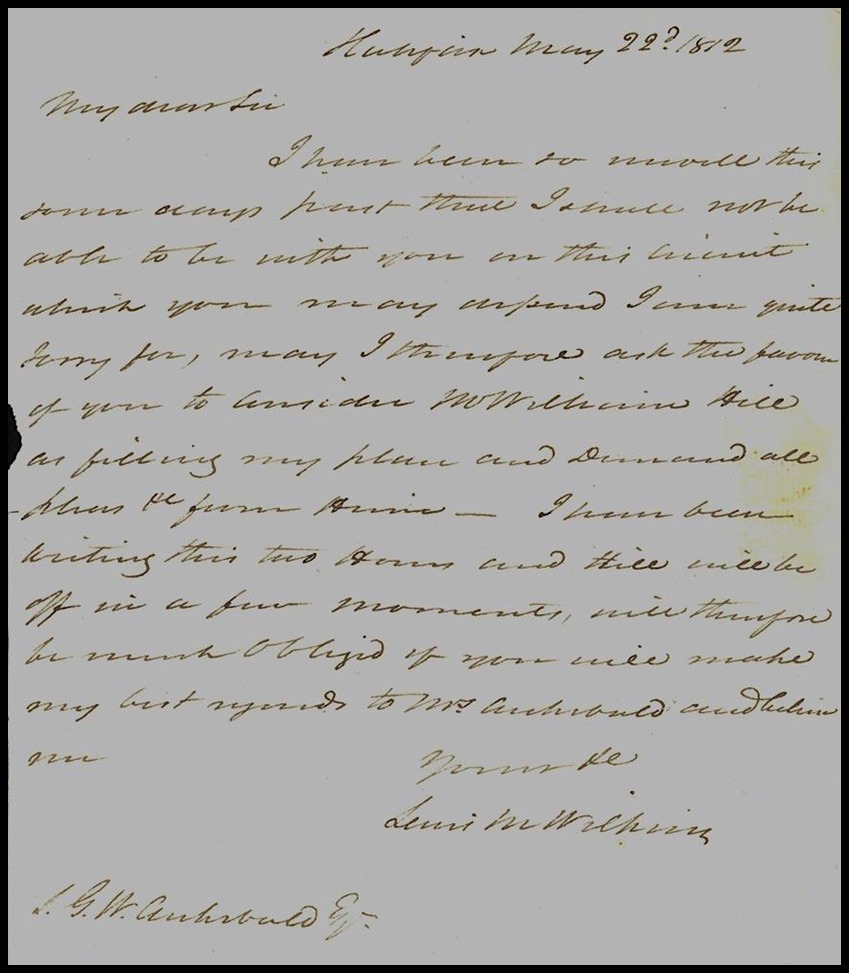 Halifax May 22d. 1812
My dear Sir
I have been so unwell this
some days past that I shall not be
able to be with you on this Circuit
which you may depend I am quite
sorry for, may I therefore ask the favour
of you to Consider Mr William Hill
as filling my place and Demand all
&c from Him — I have been
writing this two Hours and Hill will be
off in a few moments, will therefore
be much Obliged if you will make
my best regards to Mrs Archibald and believe
me
Yours &c
Lewis M Wilkins
S. G. W. Archibald Esqr.